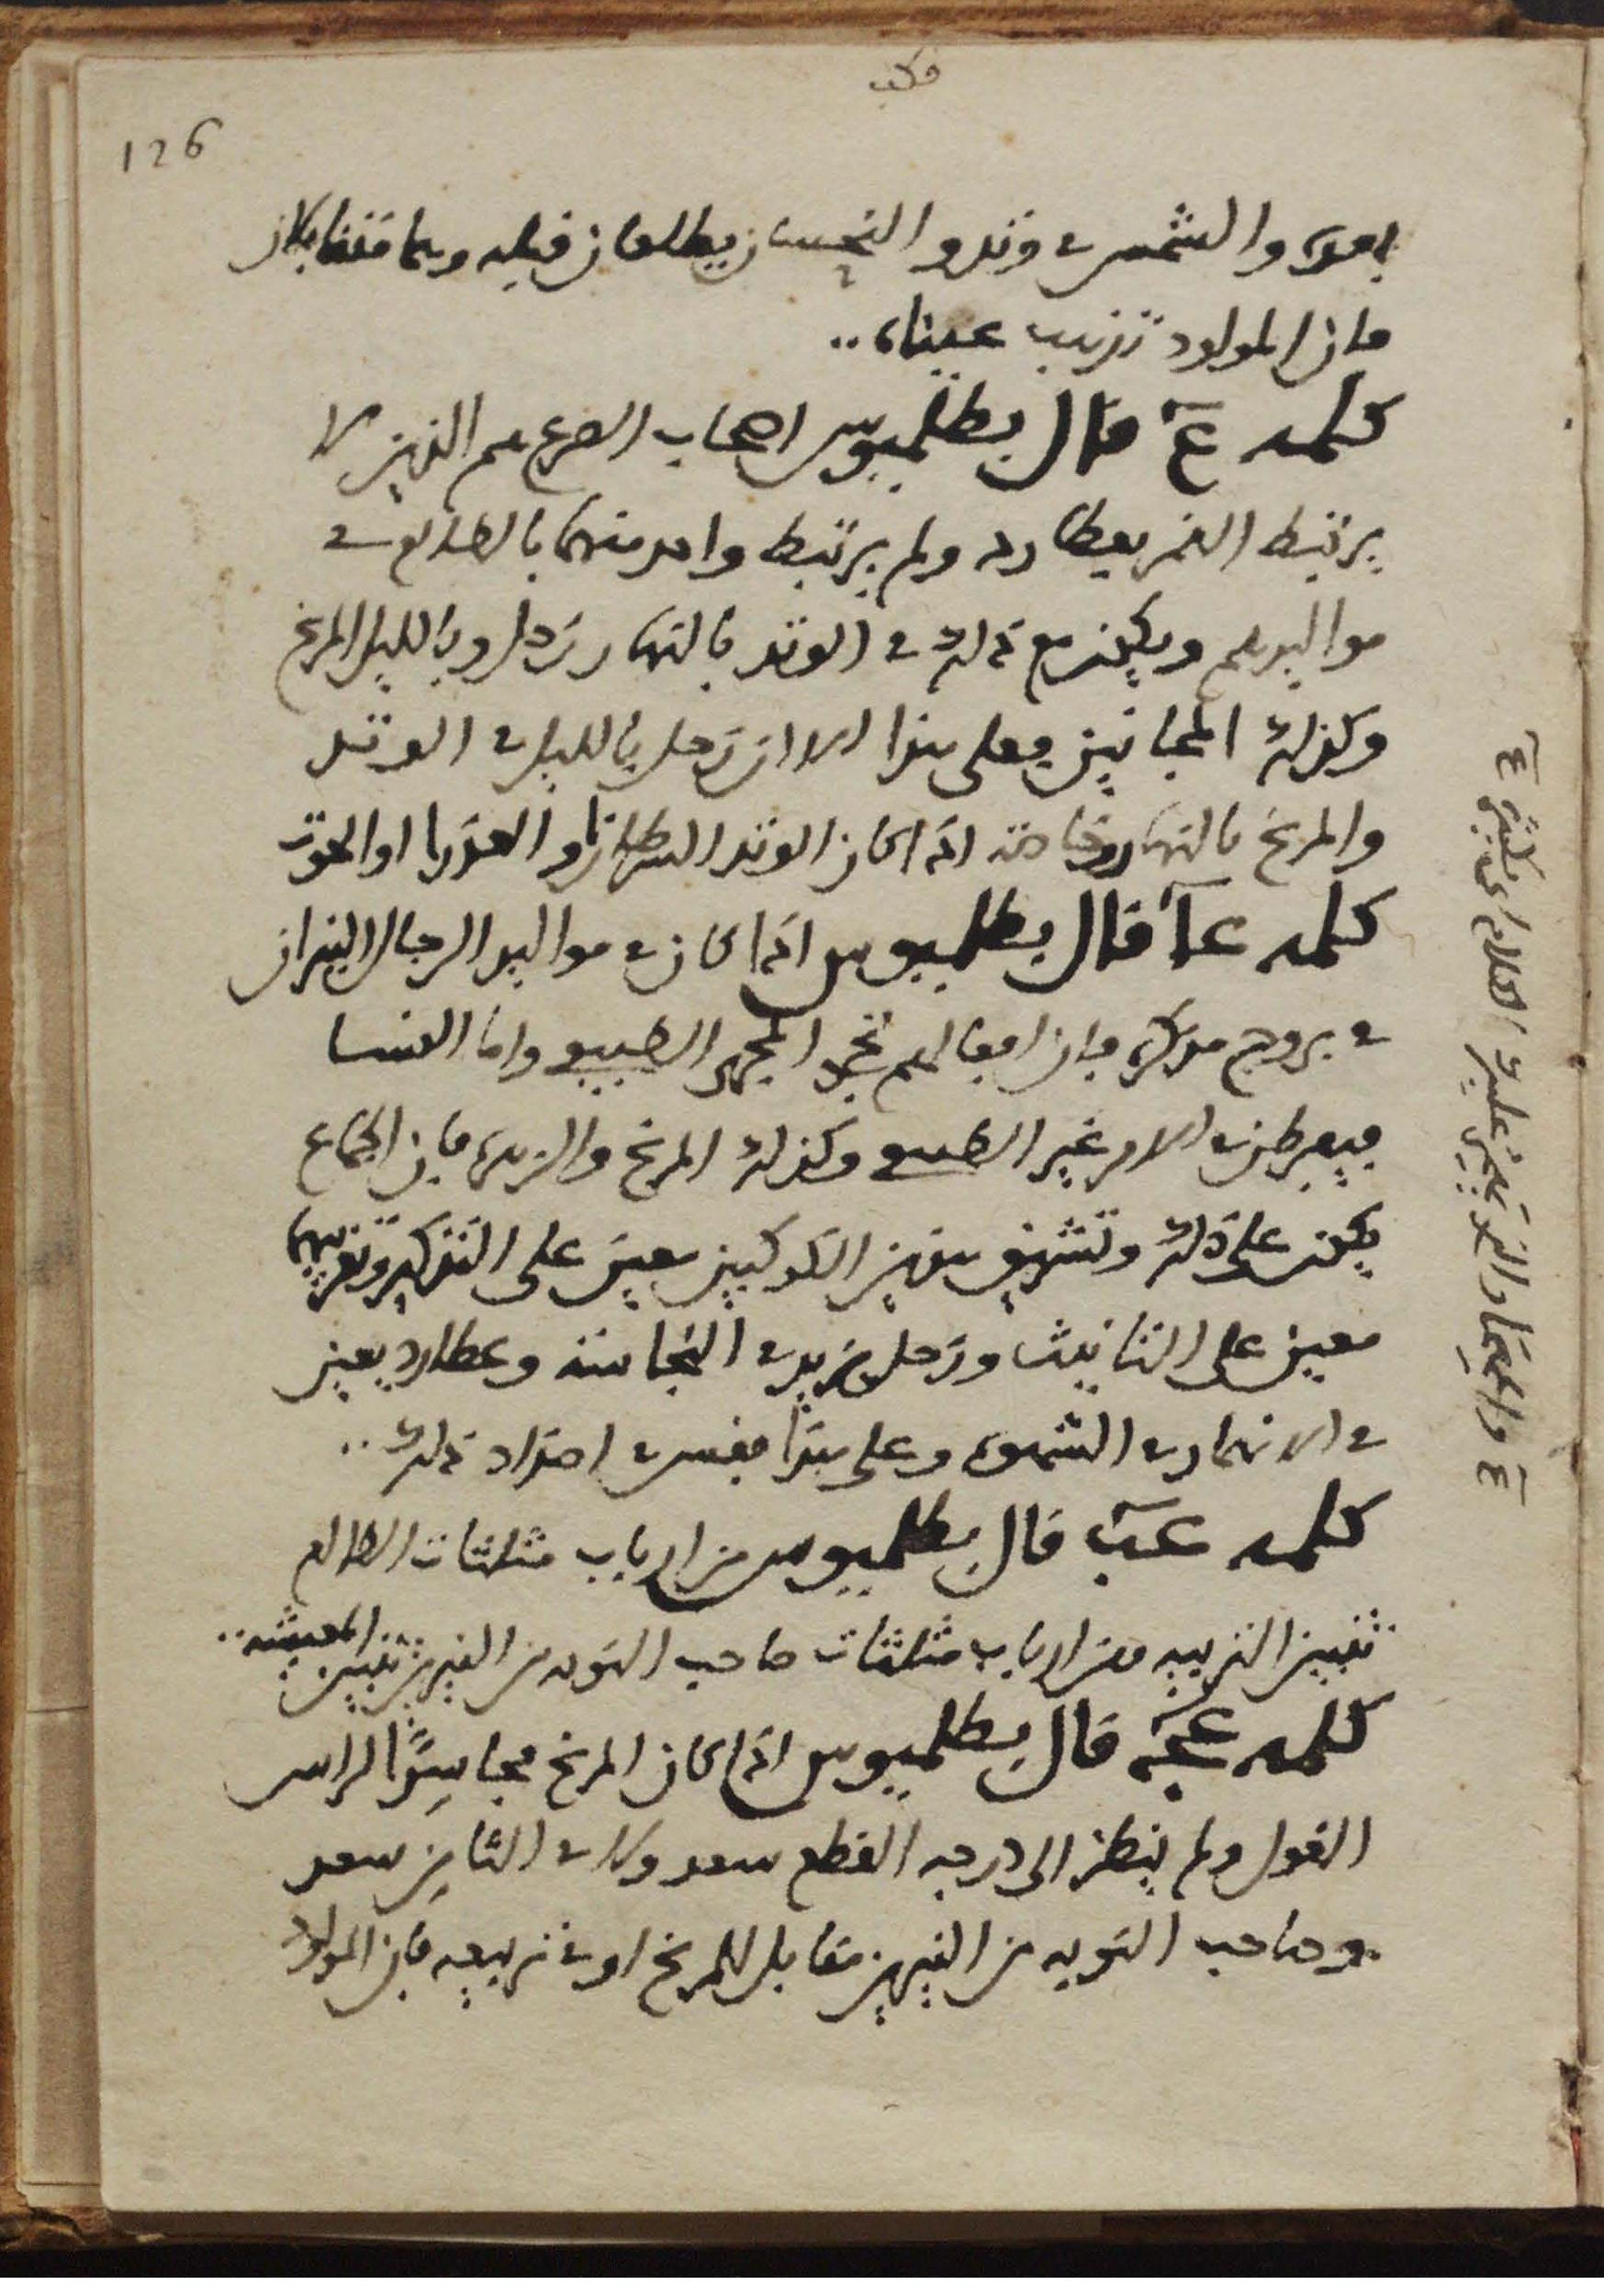 126
بعده والشمس في وتد والنحسان يطلعان قبله وهما متقابلان
فان المولود تذهب عيناه
كلمه ع قال بطلميوس اصحاب الصرع هم الذين لا
يرتبط القمر بعطارد ولم يرتبط واحد منهما بالطالع في
مواليدهم ويكون مع ذلك في الوتد بالنهار زحل وبالليل المريخ
وكذلك المجانين وعلى هذا الا ان زحل بالليل في الوتد
والمريخ بالنهار وخاصه اذا كان الوتد السرطان او العذرا او الحوت
كلمه عا قال بطلميوس اذا كان في مواليد الرجال النيران
في بروج مذكره فان افعالهم نحو المجرى الطبيعي واما النسا
فيفرطن في الامر غير الطبيعي وكذلك المريخ والزهره فان الجماع
يكون على ذلك وتشريق هذين الكوكبين معين على التذكير وتغريبهما
معين على التانيث وزحل يزيد في النجاسه وعطارد يعين
في الانهماك في الشهوه وعلى هذا فقس في اضداد ذلك
كلمه عب قال بطلميوس من ارباب مثلثات الطالع
تتبين التربيه ومن ارباب مثلثات صاحب النوبه من النيرين تتبين المعيشه
كلمه عج قال بطلميوس اذا كان المريخ مجاسدا لراس
الغول ولم ينظر الى درجه القطع سعد ولا في الثامن سعد
وصاحب النوبه من النيرين مقابل للمريخ او في تربيعه فان المولود